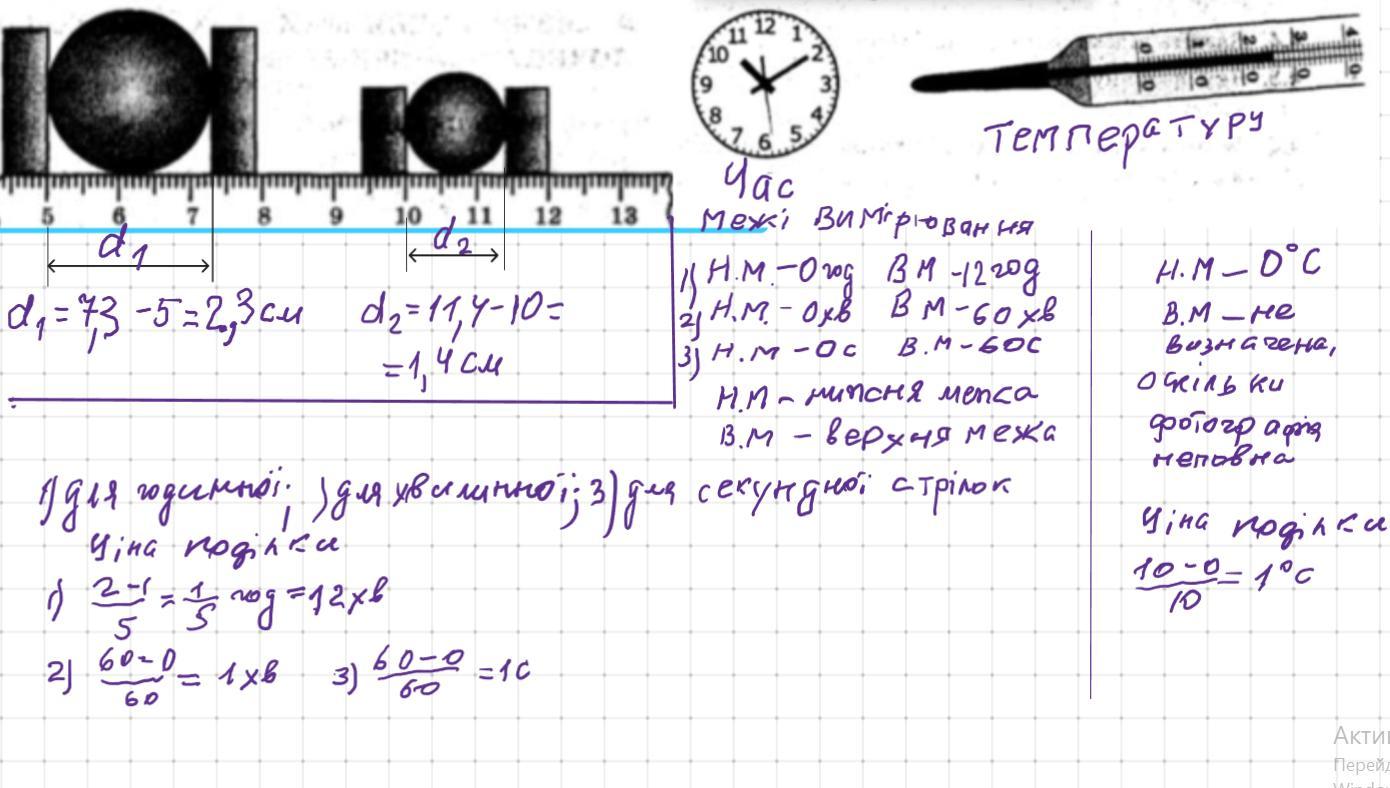 12 1 2 3 4 5 6 7 8 9 10 11
0 1 2 3 4
0 0 0 0 0
Температуру
Час
5 6 7 8 9 10 11 12 13
d1 d2
d1 = 7,3 - 5 = 2,3 см
d2 = 11,4 - 10 =
= 1,4 см
межі вимірювання
1) Н.М. - 0 год В М - 12 год
2) Н.М. - 0 хв В М - 60 хв
3) Н.М - 0 с В.М - 60 с
Н.М - нижня межа
В.М - верхня межа
Н.М - 0°С
В.М - не
визначена,
оскільки
фотографія
неповна
Ціна поділки
10 - 0 / 10 = 1°С
1) для годинної; ) для хвилинної; 3) для секундної стрілок
Ціна поділки
1) 2 - 1 / 5 = 1 / 5 год = 12 хв
2) 60 - 0 / 60 = 1 хв 3) 60 - 0 / 60 = 1 с
Акти
Перейд